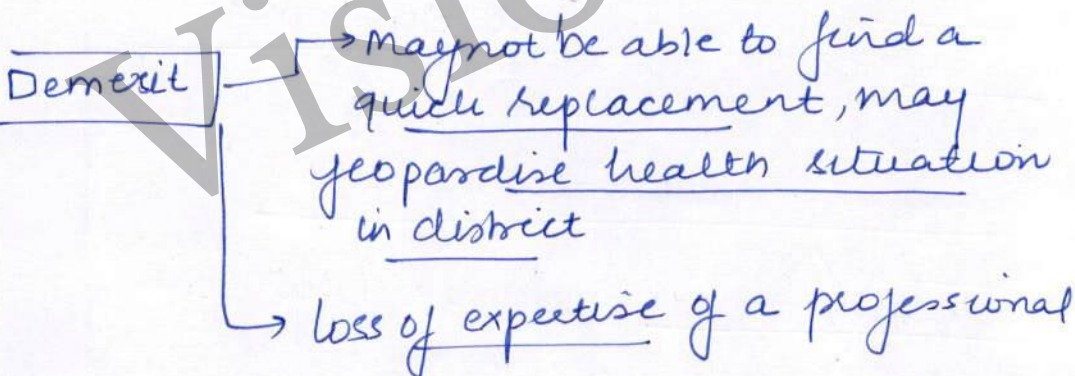 Demerit → Maynot be able to find a
quick replacement, may
jeopardise health situation
in district
→ loss of expertise of a professional